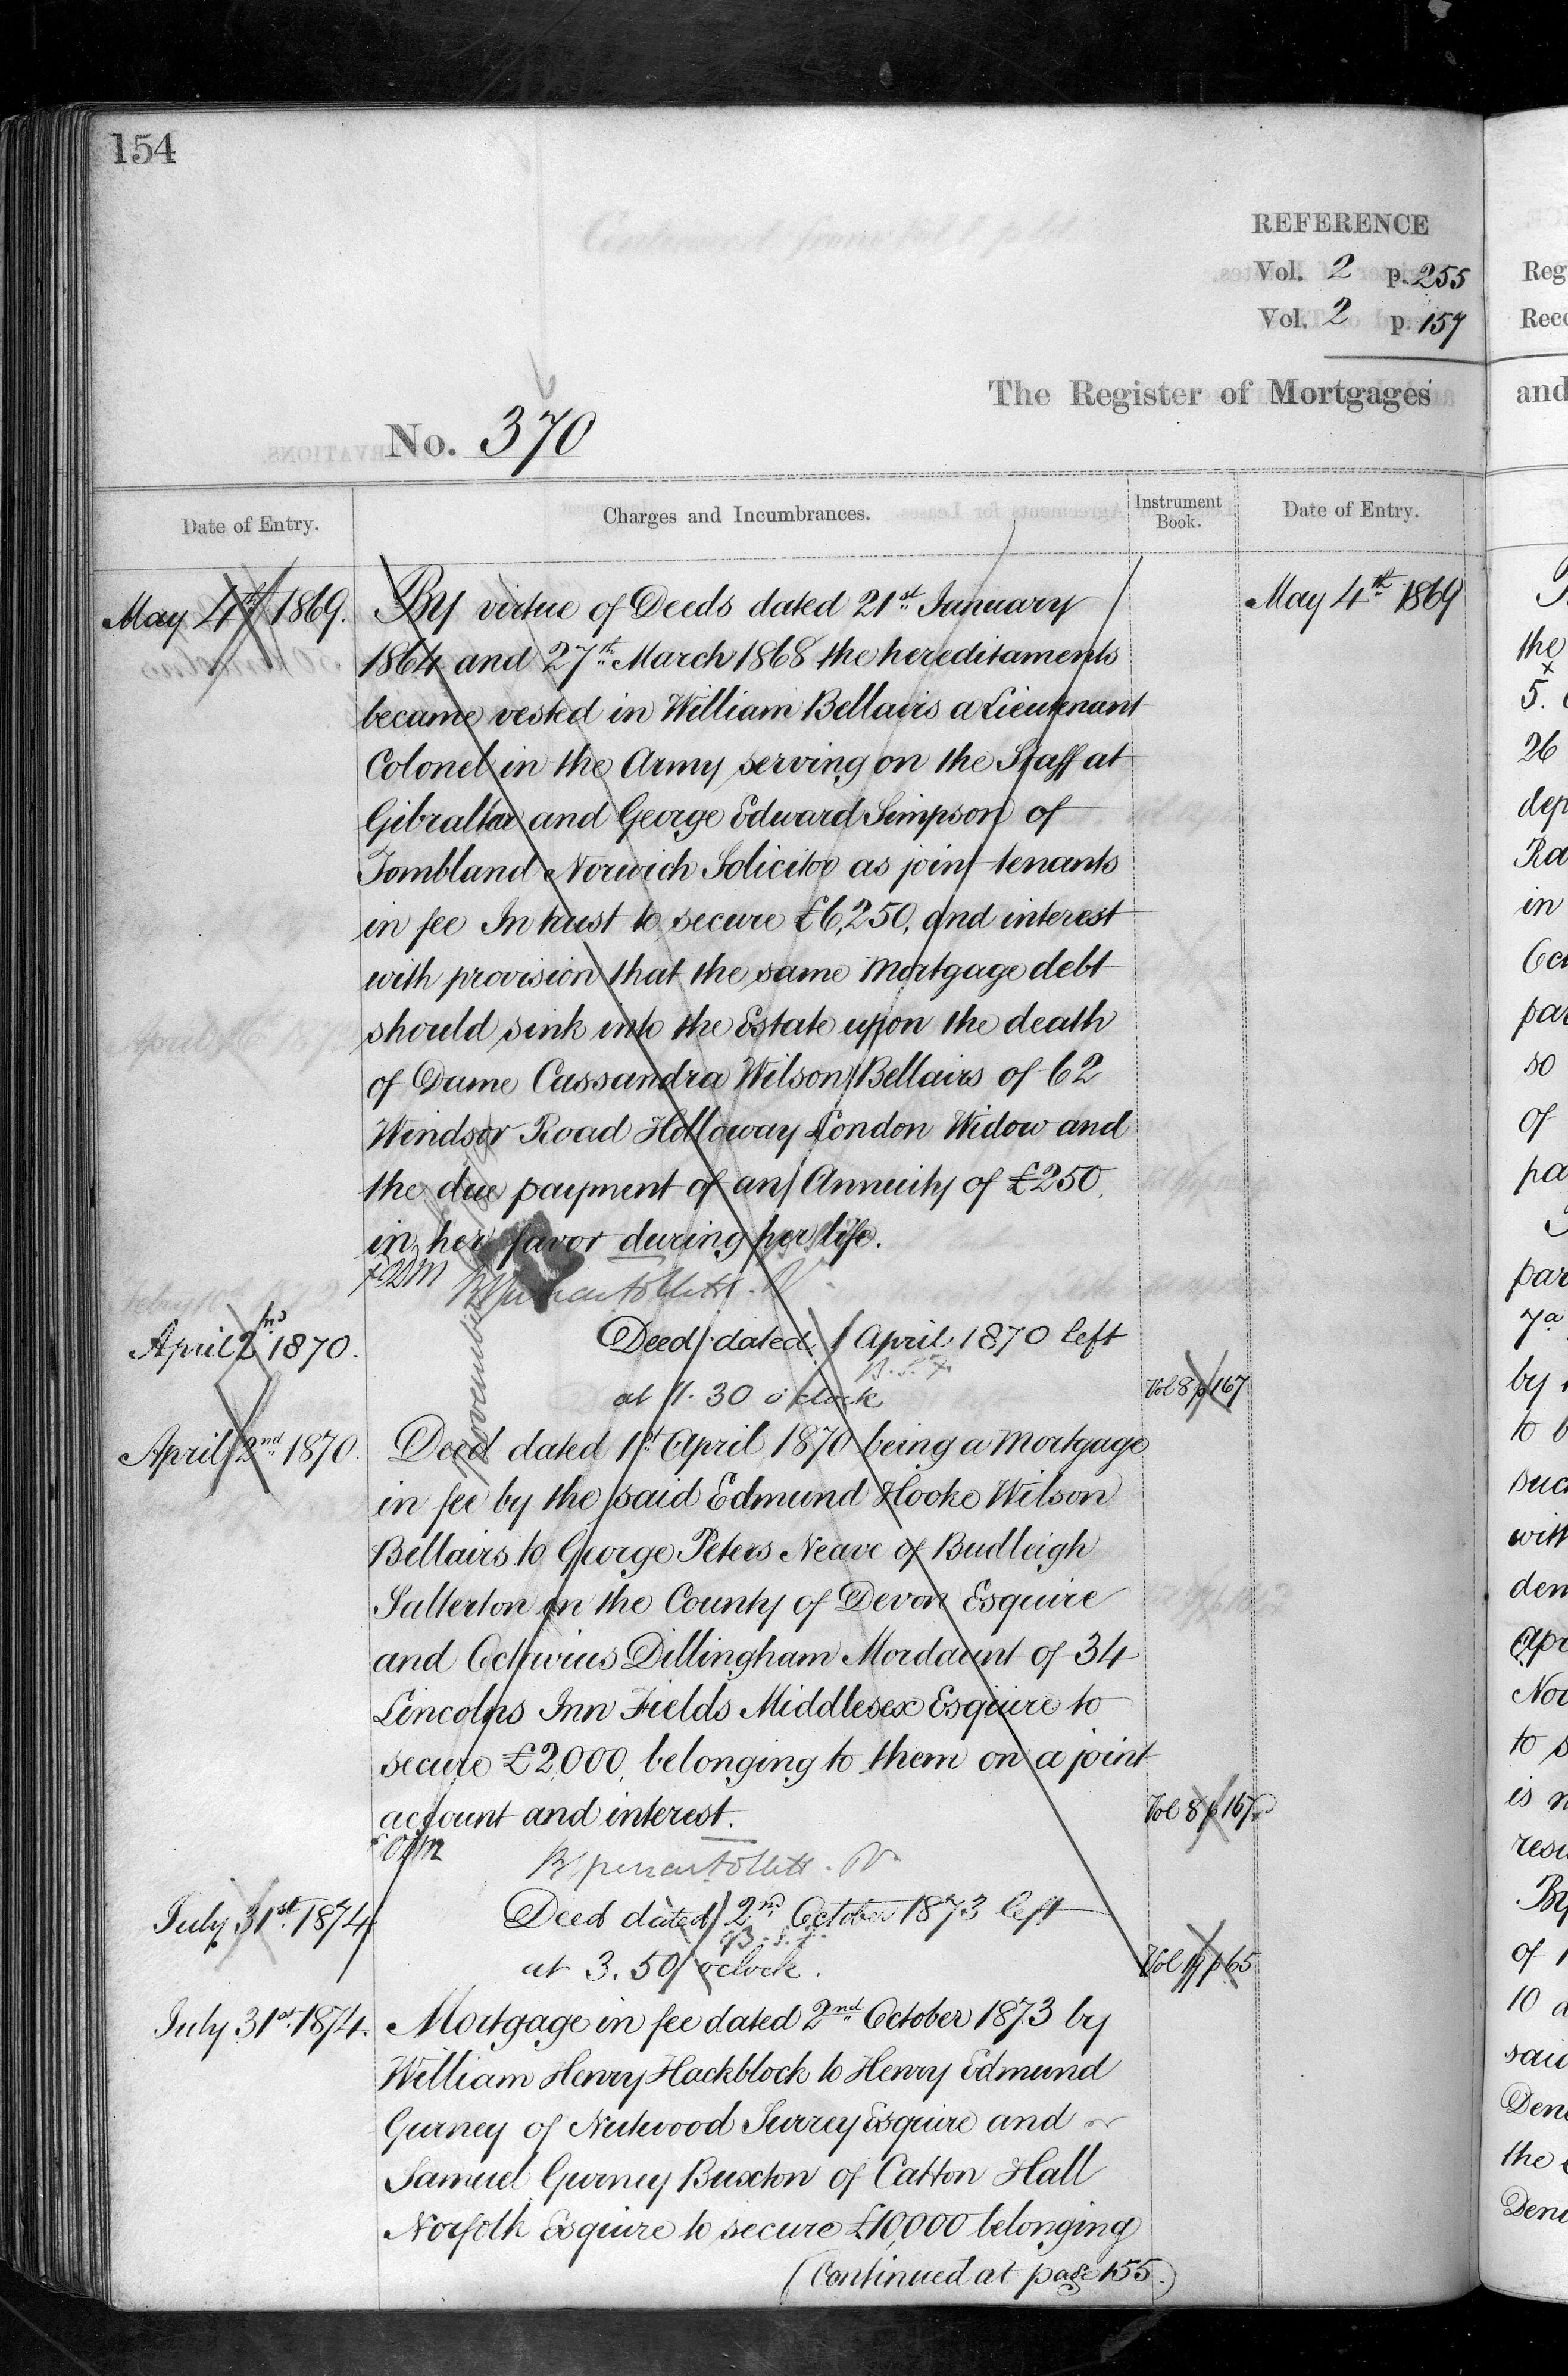 154
REFERENCE
Vol. 2 p. 255
Vol. 2 p. 157
The Register of Mortgages
No. 370
Date of Entry.
Charges and Incumbrances.
Instrument Book.
Date of Entry.
May 4th 1869.
By virtue of Deeds dated 21st January
1864 and 27th March 1868 the hereditaments
became vested in William Bellairs a Lieutenant
Colonel in the Army serving on the Staff at
Gibraltar and George Edward Simpson of
Tombland Norwich Solicitor as joint tenants
in fee In trust to secure £6,250, and interest
with provision that the same Mortgage debt
should sink into the Estate upon the death
of Dame Cassandra Wilson Bellairs of 62
Windsor Road Holloway London Widow and
the due payment of an Annuity of £250,
in her favor during her life.
May 4th 1869
April 2nd 1870.
Deed dated 1 April 1870 left
at 11.30 o'clock
Vol 8 p 167
April 2nd 1870.
Deed dated 1st April 1870 being a Mortgage
in fee by the said Edmund Hooke Wilson
Bellairs to George Peters Neave of Budleigh
Salterton in the County of Devon Esquire
and Octavius Dillingham Mordaunt of 34
Lincolns Inn Fields Middlesex Esquire to
secure £2,000, belonging to them on a joint
account and interest.
Vol 8 p 167
July 31st 1874
Deed dated 2nd October 1873 left
at 3.50 o'clock.
July 31st 1874.
Mortgage in fee dated 2nd October 1873 by
William Henry Hackblock to Henry Edmund
Gurney of Nutwood Surrey Esquire and
Samuel Gurney Buxton of Catton Hall
Norfolk Esquire to secure £10,000 belonging
(Continued at page 155.)
Reg
Reco
and
the
5.
26
dep
Ra
in
par
so
of
pa
par
by
to b
such
with
den
Apr
Nor
to s
is n
resi
By
of 1
10 a
said
Dene
the
Dene